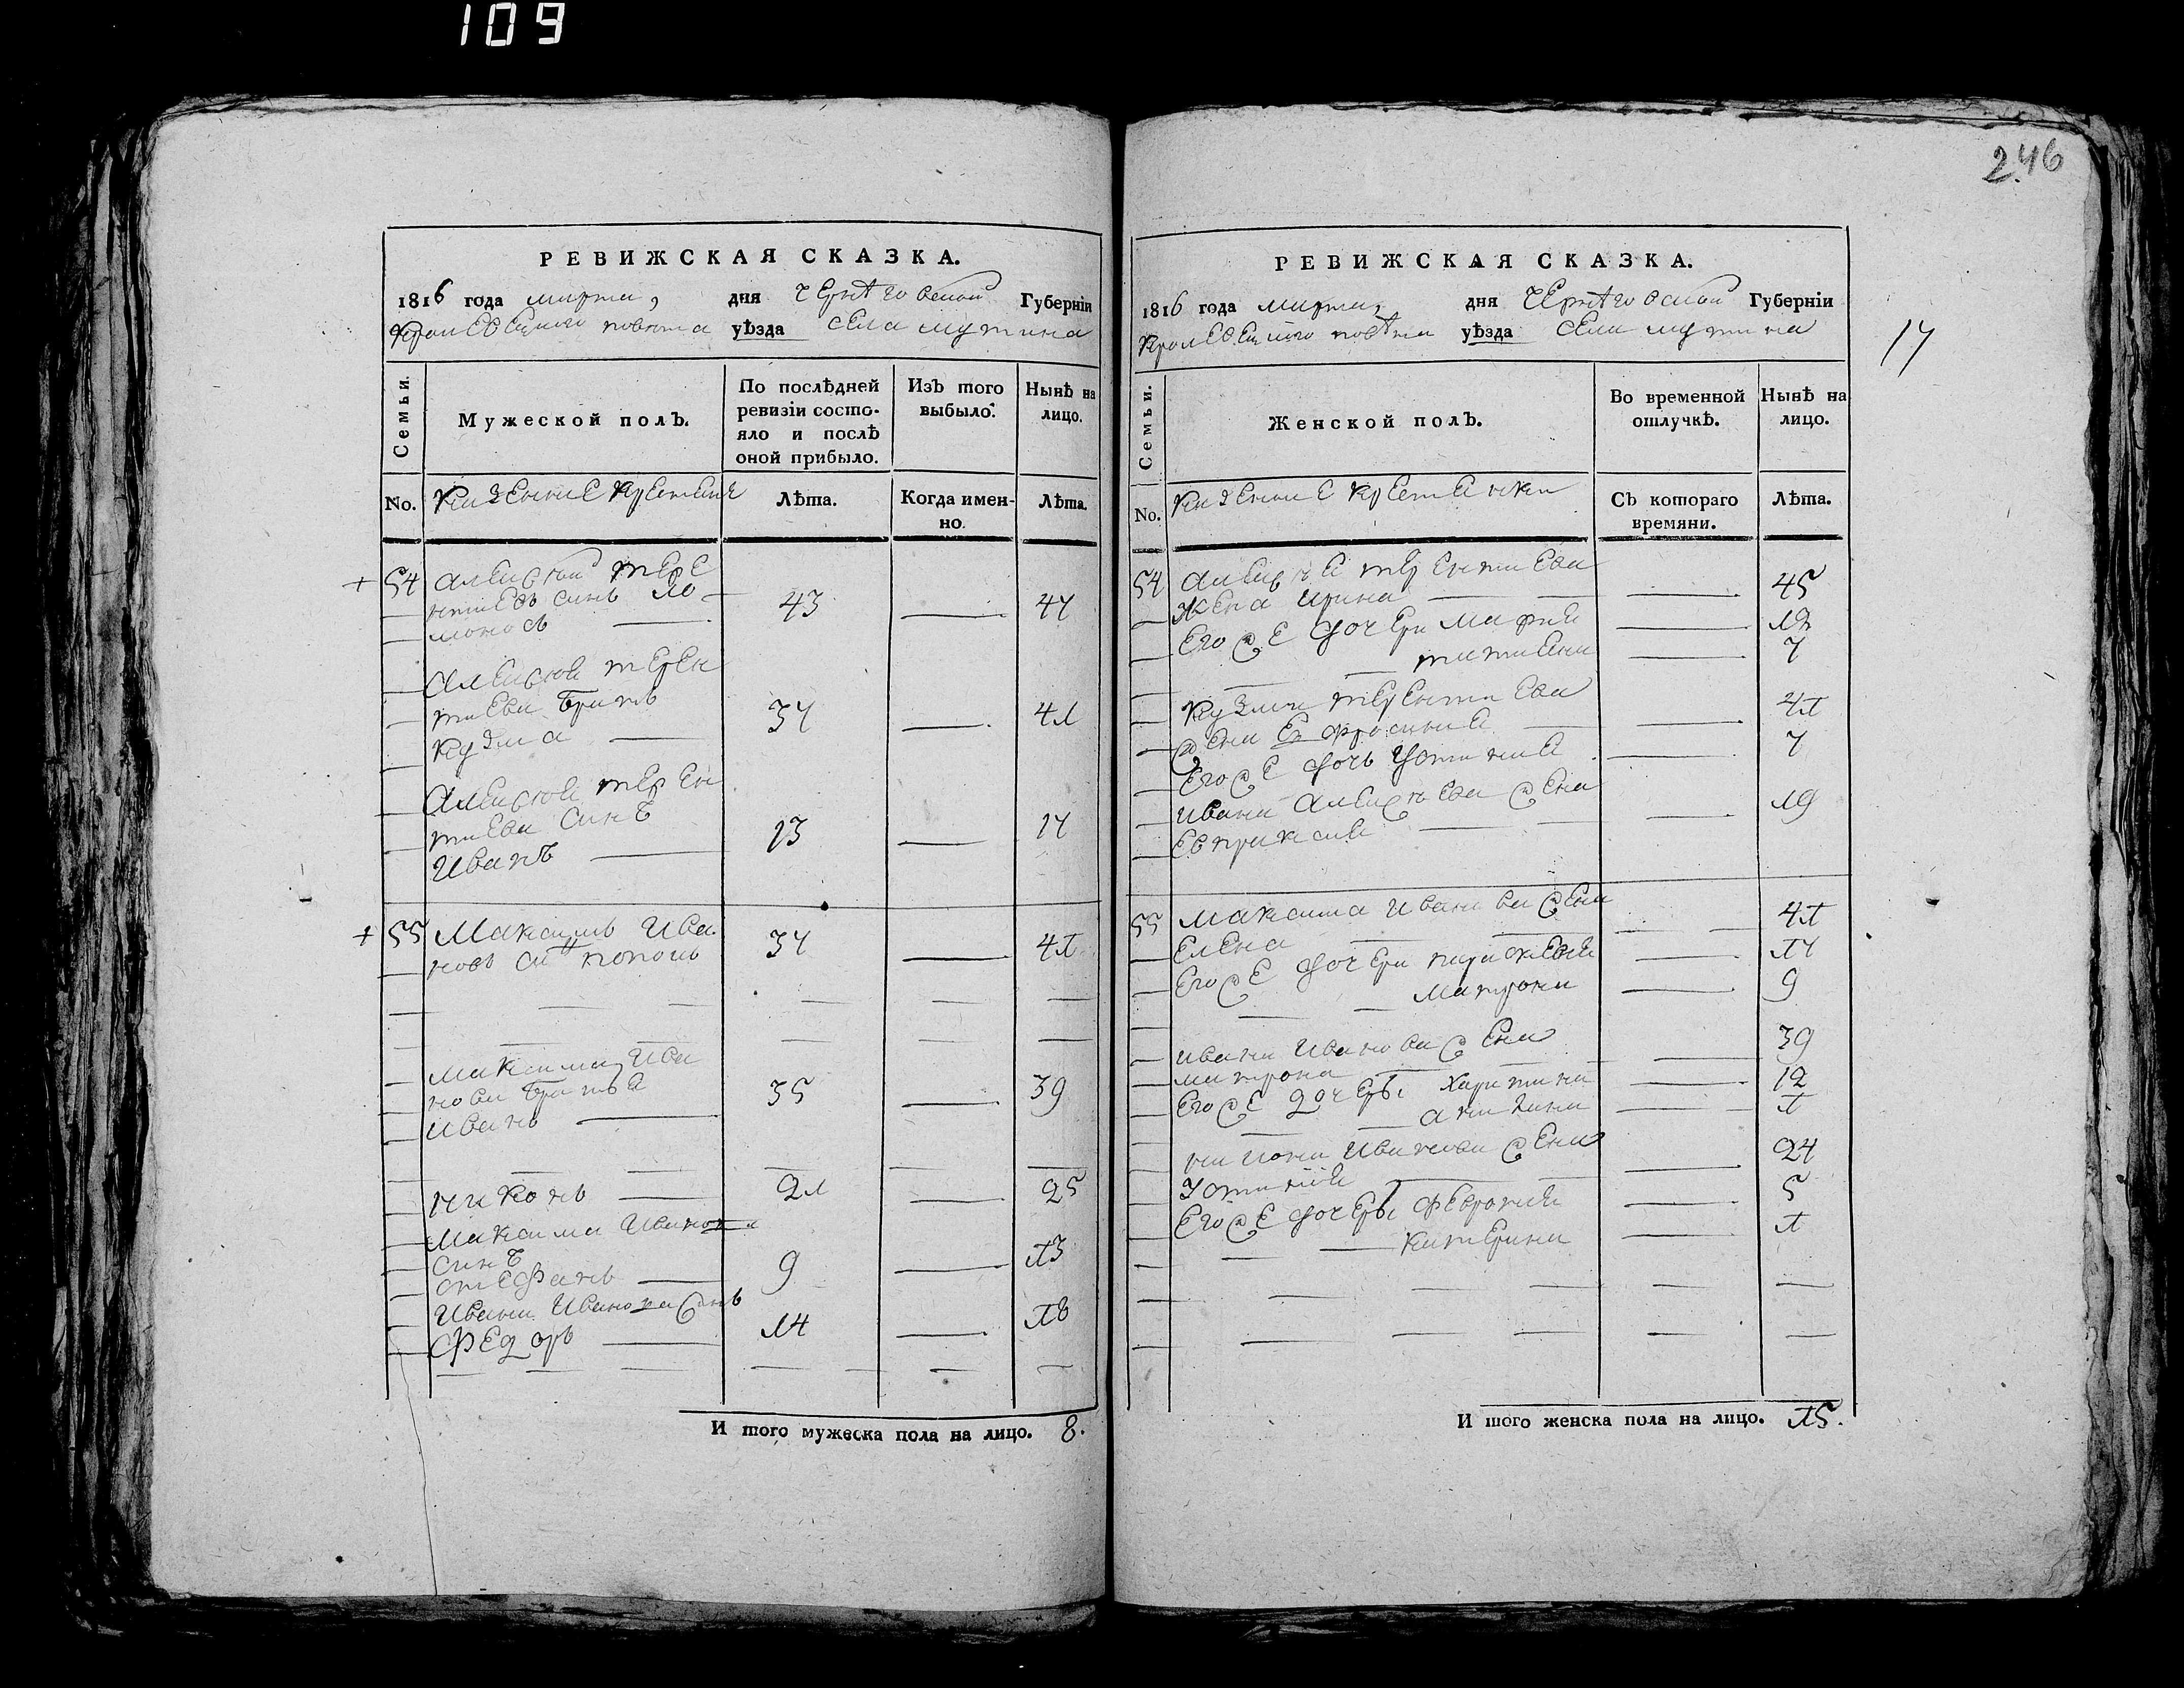 109
246
17
РЕВИЖСКАЯ СКАЗКА.
1816 года марта, дня Чернѣговской Губерніи
Кролевецкого повета уѣзда села мутина
Семьи.
Мужеской полъ.
По послѣдней
ревизіи состо-
яло и послѣ
оной прибыло.
Изъ того
выбыло.
Нынѣ на
лицо.
No.
Казенние крестяне
Лѣта.
Когда имен-
но.
Лѣта.
+ 54
терe
нтиевъ синъ
43
47
терен
тиева братъ
Кузма
37
41
терен
тиева синъ
Иванъ
13
17
+ 55 Максимъ Ива
новъ
37
41
Максима Ива
нова братья
иванъ
35
39
никонъ
21
25
Максима Иванова
синъ
стефанъ
9
13
Ивана Иванова синъ
Федоръ
14
18
И того мужеска пола на лицо. 8.
РЕВИЖСКАЯ СКАЗКА.
1816 года марта, дня Чернѣговской Губерніи
Кролевецкого повѣта уѣзда села мутина
Семьи.
Женской полъ.
Во временной
отлучкѣ.
Нынѣ на
лицо.
No.
Казенние крестянки
Съ котораго
времяни.
Лѣта.
54 терентиева
жена Ирина
45
Его же дочери Марфа
татиана
7
Кузми терентиева
жена Ефросиния
41
Его же дочь Устиния
7
ивана жена
Евпраксия
19
55 Максима Иванова жена
Елена
41
Его же дочери параскевия
17
Матрона
9
ивана Иванова жена
матрона
39
Его же дочеры Харитина
12
1
никона Иванова жена
Устиния
24
Его же дочеры феврония
5
катерина
1
И того женска пола на лицо. 15.